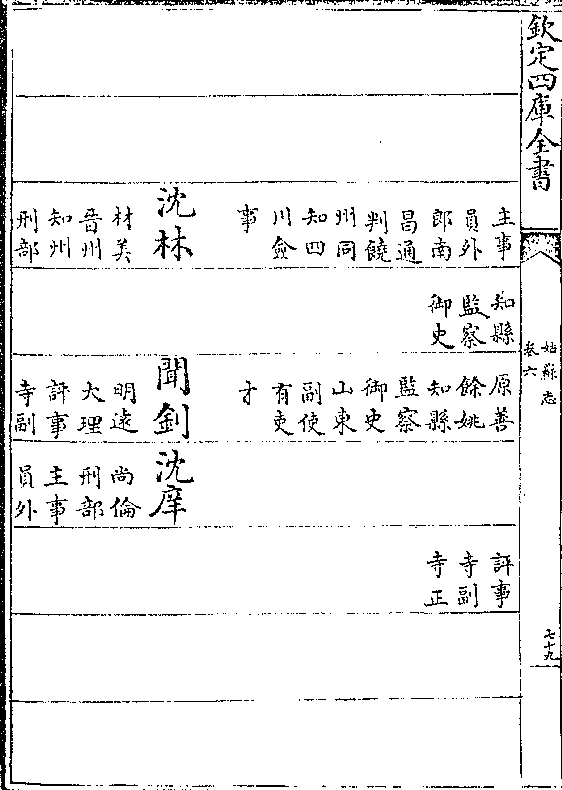 欽定四庫全書
姑蘇志
卷六
七十九
主事
員外
郎南
昌通
判饒
州同
知四
川僉
事
沈林
材美
晉州
知州
刑部
知縣
監察
御史
原善
餘姚
知縣
監察
御史
山東
副使
有吏
才
聞釗
明遠
大理
評事
寺副
沈庠
尚倫
刑部
主事
員外
評事
寺副
寺正